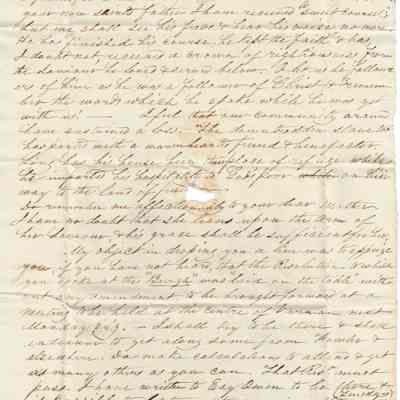 now sainted father I have received
but we shall see his face & hear his voice no more
He has finished his course, he kept the faith & has
I doubt not, received a crown of righteousness from
the Saviour he loved & served below. O let us be follow
ers of him as he was a follower of Christ & remem
ber the words which he spake while he was yet
with us! — I feel that our community around
have sustained a loss. The down trodden slave too
has parted with a warm hearted friend & benefactor
Long has his house been the place of refuge while
he imparted his hospitality to God's poor on their
way to the land of
Do remember me affectionately to your dear Mother
I have no doubt that she leans upon the arm of
her Saviour & his grace shall be sufficient for her
My object in droping you a line was to apprize
you if you have not heard, that the Resolution which
you spoke at the was laid on the table with
out any amendment to be brought forward at a
meeting to be held at the centre of next
Monday I shall try to be there & shall
endeavour to get along some from &
Do make calculations to attend & get
as many others as you can. That Resⁿ must
pass. I have written to Esq to be there &